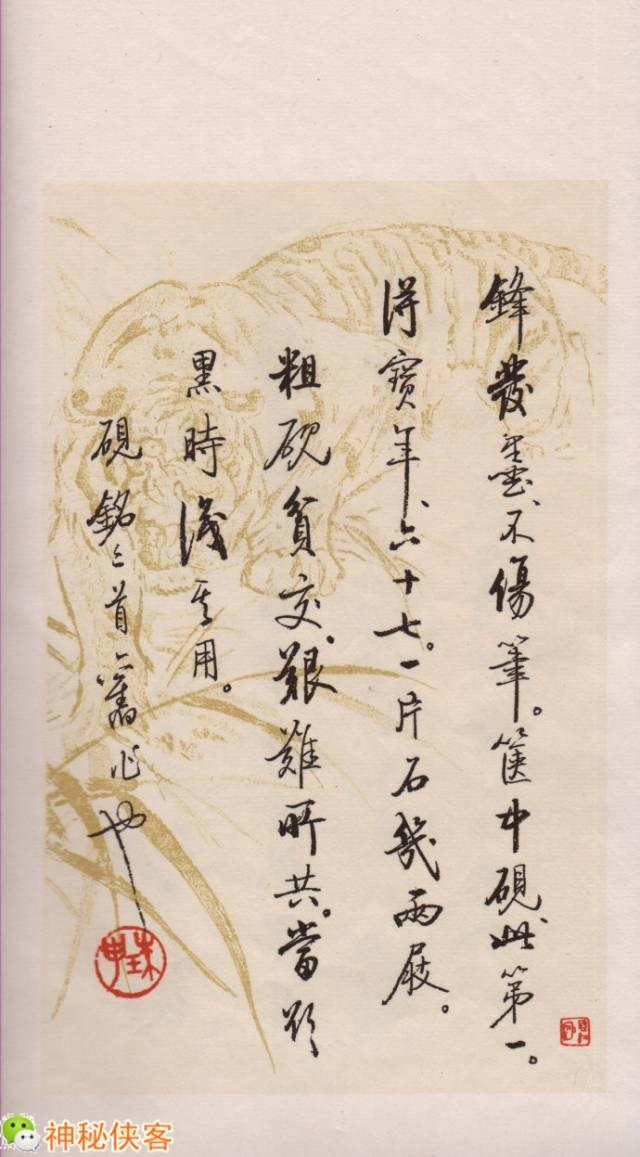 鋒發墨不傷筆。篋中硯此第一。
得寶年、六十七。一片石幾兩屐。
粗硯貧交、艱難所共。當欲
黑時識其用。
硯銘二首舊作也
珠申
神秘侠客